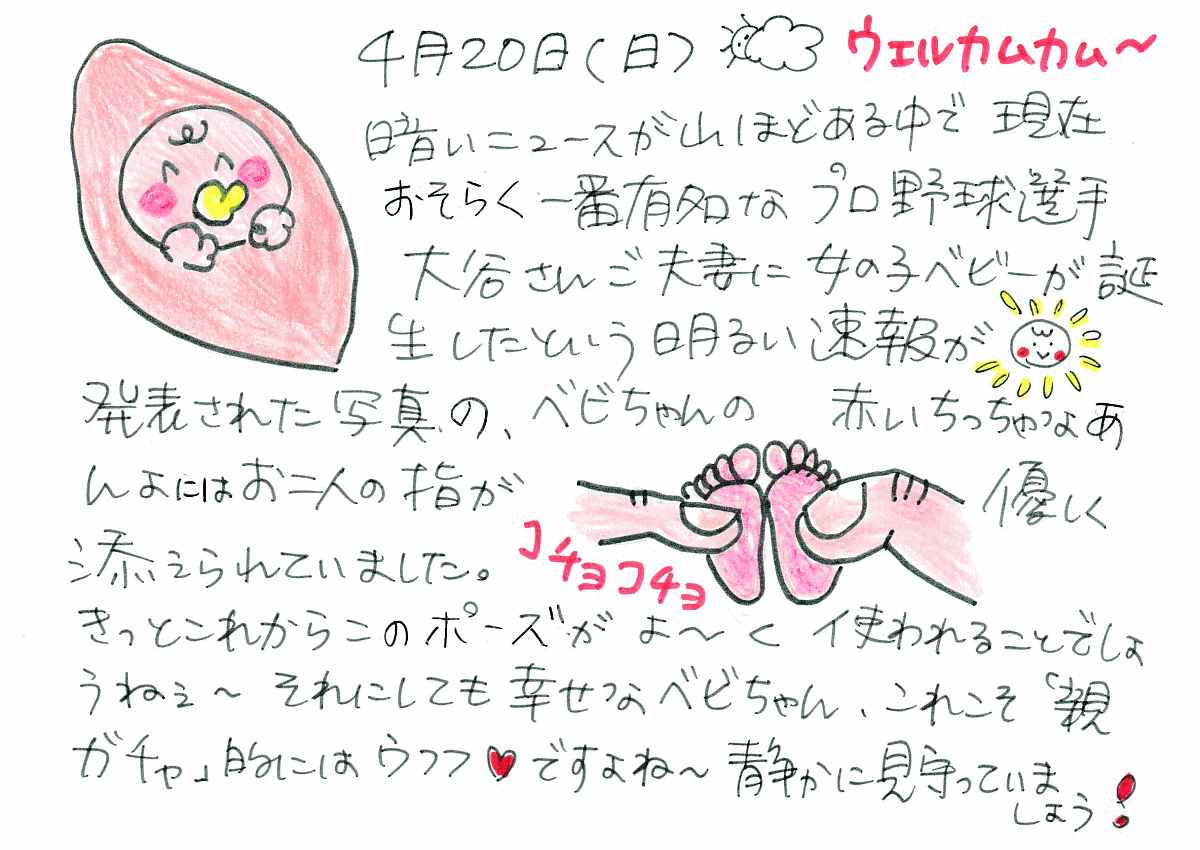 4月20日(日) ウェルカムカム〜
暗いニュースが山ほどある中で 現在
おそらく一番有名な プロ野球選手
大谷さんご夫妻に 女の子ベビーが誕
生したという明るい速報が
発表された写真の、ベビちゃんの 赤いちっちゃなあ
んよにはお二人の指が 優しく
添えられていました。
コチョコチョ
きっとこれからこのポーズが よ〜く 使われることでしょ
うねぇ〜 それにしても幸せなベビちゃん、これこそ「親
ガチャ」的にはウフフ♥ですよね〜 静かに見守っていま
しょう!